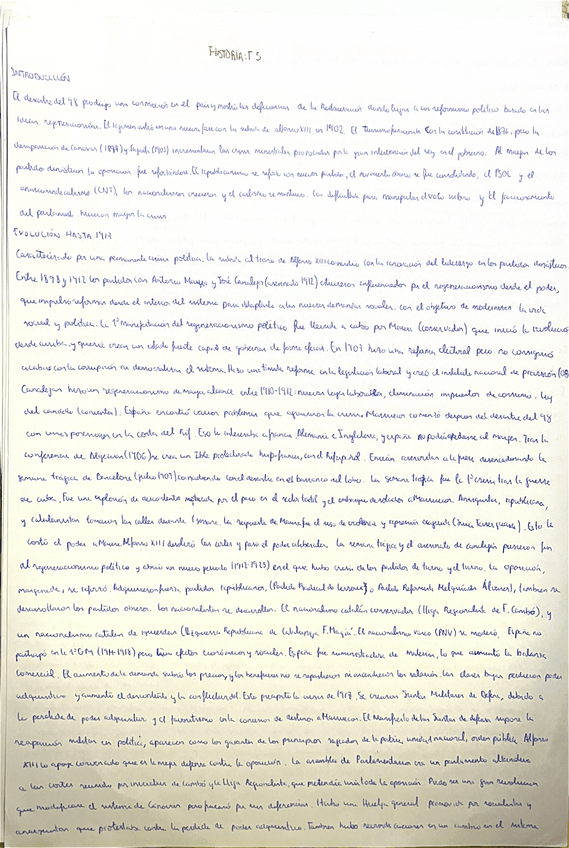 HISTORIA: T5
INTRODUCCIÓN
El desastre del 98 produjo una conmoción en el país y mostró las deficiencias de la Restauración dando lugar a un reformismo político basado en las
ideas regeneracionistas. El régimen entró en una nueva fase con la subida de alfonso XIII en 1902. El con la constitución de 1876, pero la
desaparición de Canovas (1897) y Sagasta (1903) incrementan las crisis ministeriales provocadas por la gran intervención del rey en el gobierno. Al margen de los
partidos dinásticos la oposición fue reforzándose. El republicanismo se refundó en nuevos partidos, el movimiento obrero se fue consolidando, el PSOE y el
anarcosindicalismo (CNT), los nacionalismos crecieron y el carlismo se mantuvo. Las dificultades para manipular el voto urbano y el fraccionamiento
del parlamento hicieron mayor la crisis
EVOLUCIÓN HASTA 1917
Caracterizado por una permanente crisis política. La subida al trono de Alfonso XIII coincidió con la renovación del liderazgo en los partidos dinásticos.
Entre 1898 y 1912 los partidos con Antonio Maura y José Canalejas (asesinado 1912) estuvieron influenciados por el regeneracionismo desde el poder,
que impulsó reformas desde el interior del sistema para adaptarlo a las nuevas demandas sociales, con el objetivo de modernizar la vida
social y política. La 1ª manifestación del regeneracionismo político fue llevada a cabo por Maura (conservador) que inició la revolución
desde arriba, y quería crear un estado fuerte capaz de gobernar de forma eficaz. En 1907 hizo una reforma electoral pero no consiguió
acabar con la corrupción ni democratizar el sistema. Hizo una tímida reforma en la legislación laboral y creó el instituto nacional de previsión
Canalejas hizo un regeneracionismo de mayor alcance entre 1910-1912: nuevas leyes laborales, eliminación impuestos de consumo, ley
del candado (conventos). España encontró varios problemas que agravaron la crisis. Marruecos comenzó después del desastre del 98
con unas posesiones en la costa del Rif. Eso le interesaba a Francia Alemania e Inglaterra, y españa no podía quedarse al margen. Tras la
conferencia de Algeciras (1906) se crea un doble protectorado hispano-francés, con el Rif español. Envían
semana trágica de Barcelona (julio 1909) coincidiendo con el desastre en el barranco del lobo. La semana trágica fue la 1ª crisis tras la guerra
de cuba. Fue una explosión de descontento motivada por el paro en el sector textil y el embarque de soldados a Marruecos. Anarquistas, republicanos,
y catalanistas tomaron las calles durante 1 semana. La respuesta de Maura fue el uso de violencia y represión exagerada (). Esto le
costó el poder a Maura. Alfonso XIII disolvió las cortes y pasó el poder a liberales. La semana trágica y el asesinato de canalejas pusieron fin
al regeneracionismo político y abrió un nuevo periodo (1912-1923) en el que hubo crisis de los partidos de turno y el turno. La oposición,
marginada, se reforzó. Adquirieron fuerza partidos republicanos, (Partido Radical de Lerroux), o Partido Reformista Melquíades Álvarez), también se
desarrollaron los partidos obreros. Los nacionalismos se desarrollan. El nacionalismo catalán conservador (lliga Regionalista de F. Cambó), y
un nacionalismo catalán de izquierdas (Esquerra Republicana de Catalunya F. Macià). El nacionalismo vasco (PNV) se moderó. España no
participó en la 1ª GM (1914-1918) pero tuvo efectos económicos y sociales. España fue suministradora de materias, lo que aumentó la balanza
comercial. El aumento de la demanda subió los precios, y los beneficios no se repartieron manteniéndose los salarios. Las clases bajas perdieron poder
adquisitivo y aumentó el descontento y la conflictividad. Esto preparó la crisis de 1917. Se crearon Juntas Militares de Defensa, debido a
la pérdida de poder adquisitivo y el favoritismo en los ascensos de destino a Marruecos. El Manifiesto de las Juntas de defensa supone la
reaparición militar en política, aparecen como los garantes de los principios sagrados de la patria, unidad nacional, orden público. Alfonso
XIII lo apoya convencido que es la mejor defensa contra la oposición. La asamblea de Parlamentarios era un parlamento alternativo
a las cortes reunido por iniciativa de cambó y la lliga Regionalista, que pretendía unir toda la oposición. Pudo ser una gran revolución
que modificase el sistema de Canovas pero fracasó por sus diferencias. Hubo una Huelga general promovida por socialistas y
anarquistas que protestaba contra la perdida de poder adquisitivo. También hubo reivindicaciones en un cambio en el sistema